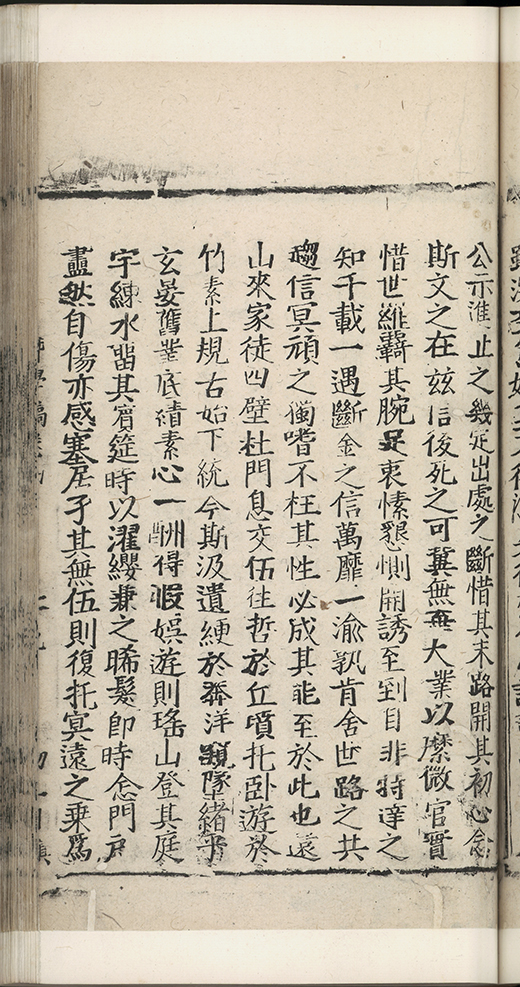 公示淮止之幾定出處之斷惜其末路開其初心念
斯文之在兹信後死之可冀無弃大業以縻微官實
惜世維羈其腕足衷愫懇惻開誘至到自非特達之
知千載一遇斷金之信萬靡一渝孰肯舍世路之共
趨信冥頑之獨嗜不枉其性必成其能至於此也遠
山來家徒四壁杜門息交伍往哲於丘墳托卧遊於
竹素上規古始下統今斯汲遺綆於莽洋覬墜緒乎
玄晏舊業底績素心一酬得暇娛遊則瑤山登其庭
宇練水留其賓筵時以濯纓兼之晞髮即時念門户
盡然自傷亦感塞居孑其無伍則復托冥遠之乘為